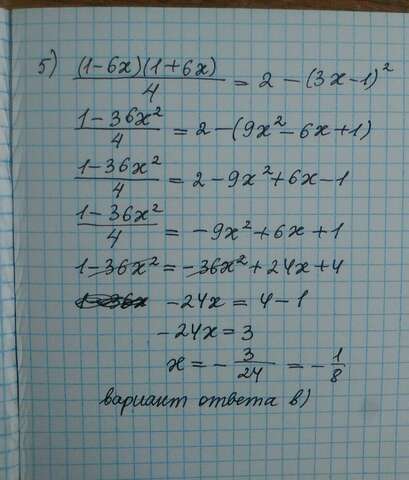 5) (1-6x)(1+6x)/4 = 2 - (3x-1)²
1-36x²/4 = 2-(9x²-6x+1)
1-36x²/4 = 2-9x²+6x-1
1-36x²/4 = -9x²+6x+1
1-36x² = -36x²+24x+4
1-36x -24x = 4-1
-24x = 3
x = -3/24 = -1/8
вариант ответа в)